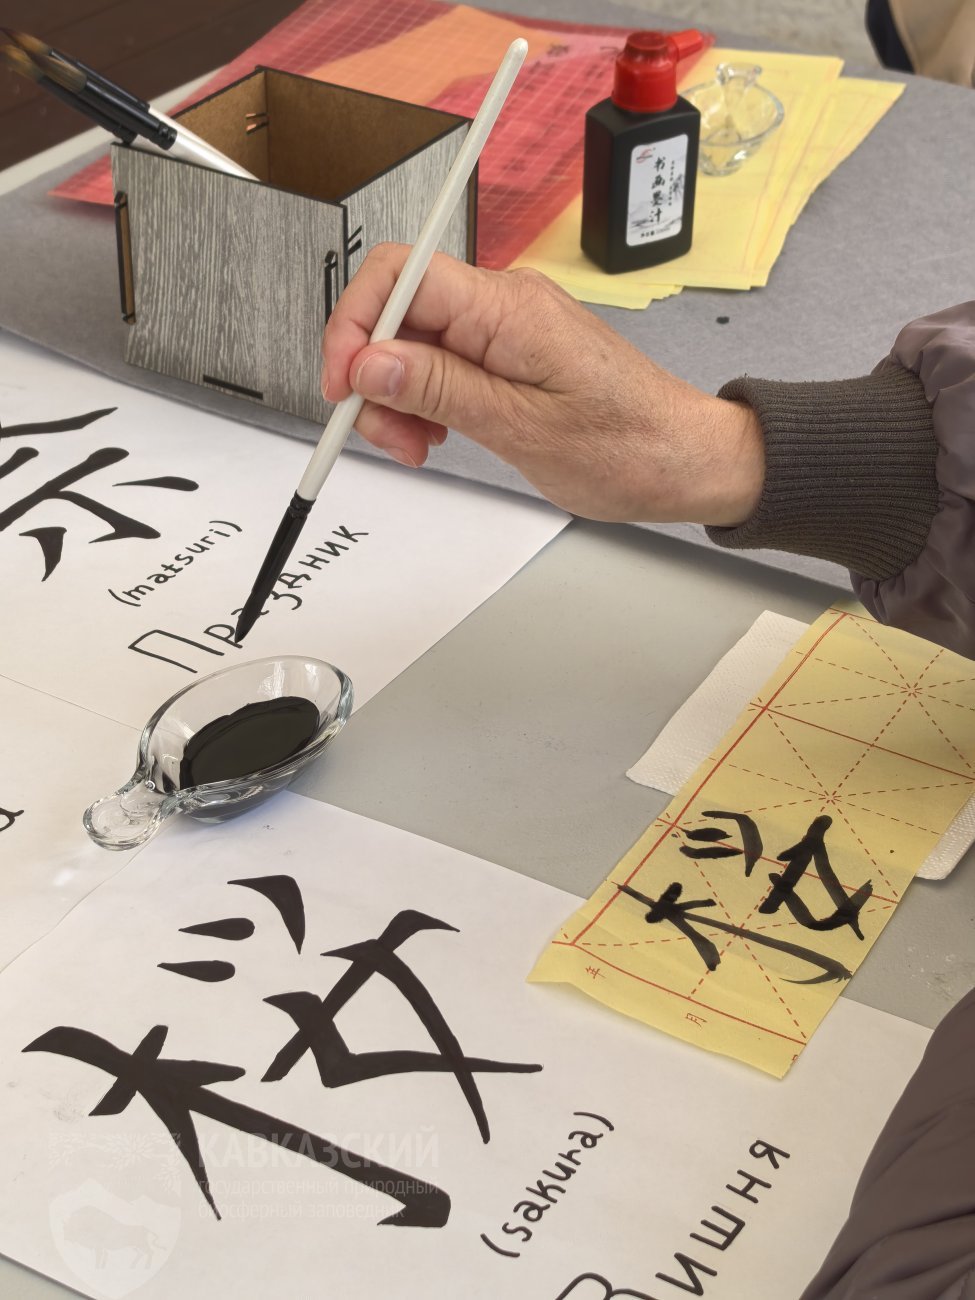 书画墨汁
(matsuri)
Праздник
桜
年
月
桜
(sakura)
Вишня
КАВКАЗСКИЙ
государственный природный
биосферный заповедник